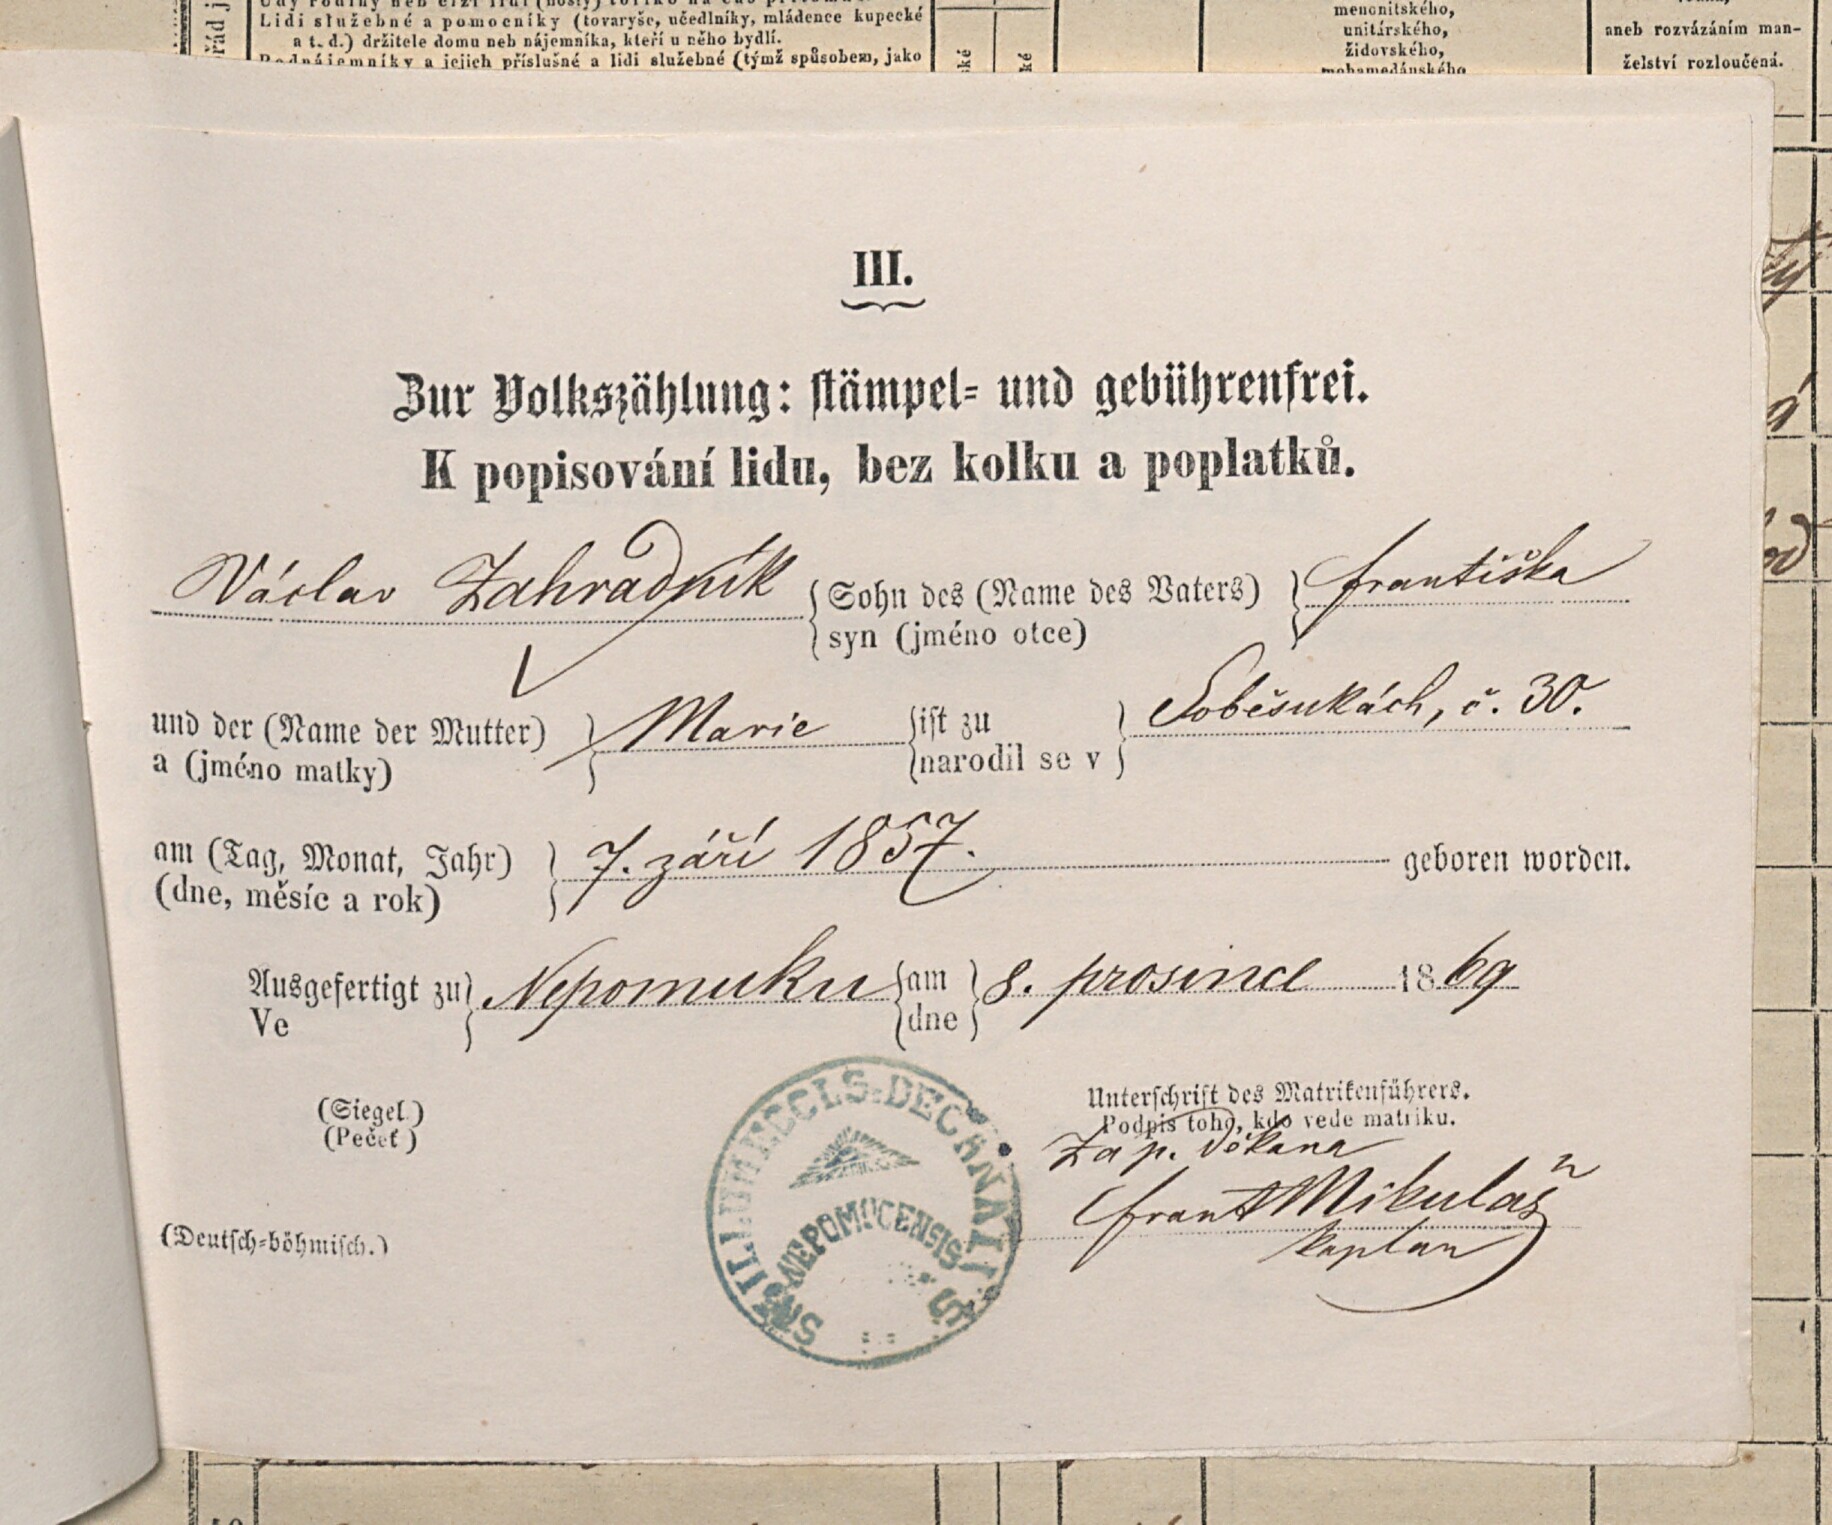 Lidi služebné a pomocníky (tovaryše, učedlníky, mládence kupecké
a t. d.) držitele domu neb nájemníka, kteří u něho bydlí.
Podnájemníky a jejich příslušné a lidi služebné (týmž spůsobem, jako
menonitského,
unitárského,
židovského,
mohamedánského
aneb rozvázáním man-
želství rozloučená.
III.
Zur Volkszählung: stämpel- und gebührenfrei.
K popisování lidu, bez kolku a poplatků.
Václav Zahradník { Sohn des (Name des Vaters) } Františka
syn (jméno otce)
und der (Name der Mutter) } Marie { ist zu } Soběsukách, č. 30.
a (jméno matky) narodil se v
am (Tag, Monat, Jahr) } 7. září 1857. geboren worden.
(dne, měsíc a rok)
Ausgefertigt zu } Nepomuku { am } 8. prosince 1869
Ve dne
(Siegel.)
(Pečeť)
Unterschrift des Matrikenführers.
Podpis toho, kdo vede matriku.
Za p. děkana
Frant Mikuláš
kaplan
DECANALIS
NEPOMUCENSIS
(Deutsch-böhmisch.)